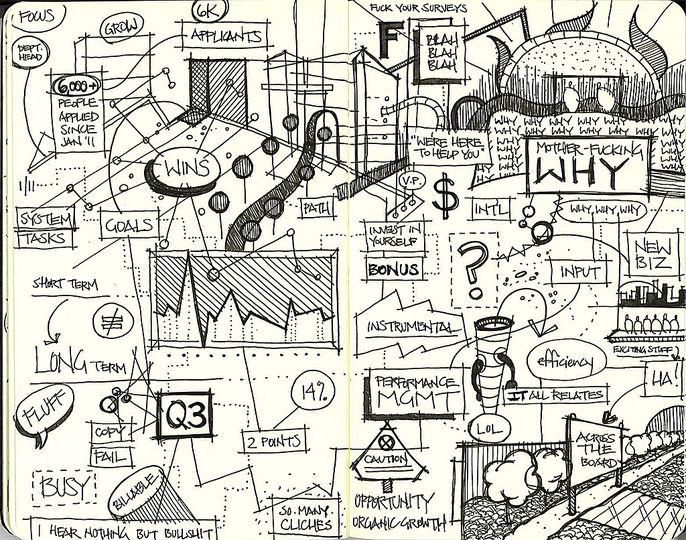 FOCUS
GROW
6K
APPLICANTS
DEPT.
HEAD
6,000+
PEOPLE
APPLIED
SINCE
JAN '11
1/11
WINS
SYSTEM
TASKS
GOALS
PATH
SHORT TERM
≠
LONG TERM
FLUFF
COPY
FAIL
Q3
14%
2 POINTS
BUSY
BILLABLE
I HEAR NOTHING BUT BULLSHIT
SO. MANY.
CLICHES
FUCK YOUR SURVEYS
F
BLAH
BLAH
BLAH
"WE'RE HERE
TO HELP YOU"
V.P.
$
INT'L
WHY WHY WHY WHY WHY
WHY WHY WHY WHY WHY
MOTHER-FUCKING
WHY
WHY, WHY, WHY
INVEST IN
YOURSELF
BONUS
?
INPUT
NEW
BIZ
INSTRUMENTAL
efficiency
EXCITING STUFF!
PERFORMANCE
MGMT
IT ALL RELATES
HA!
LOL
CAUTION
ACROSS
THE
BOARD
OPPORTUNITY
ORGANIC GROWTH